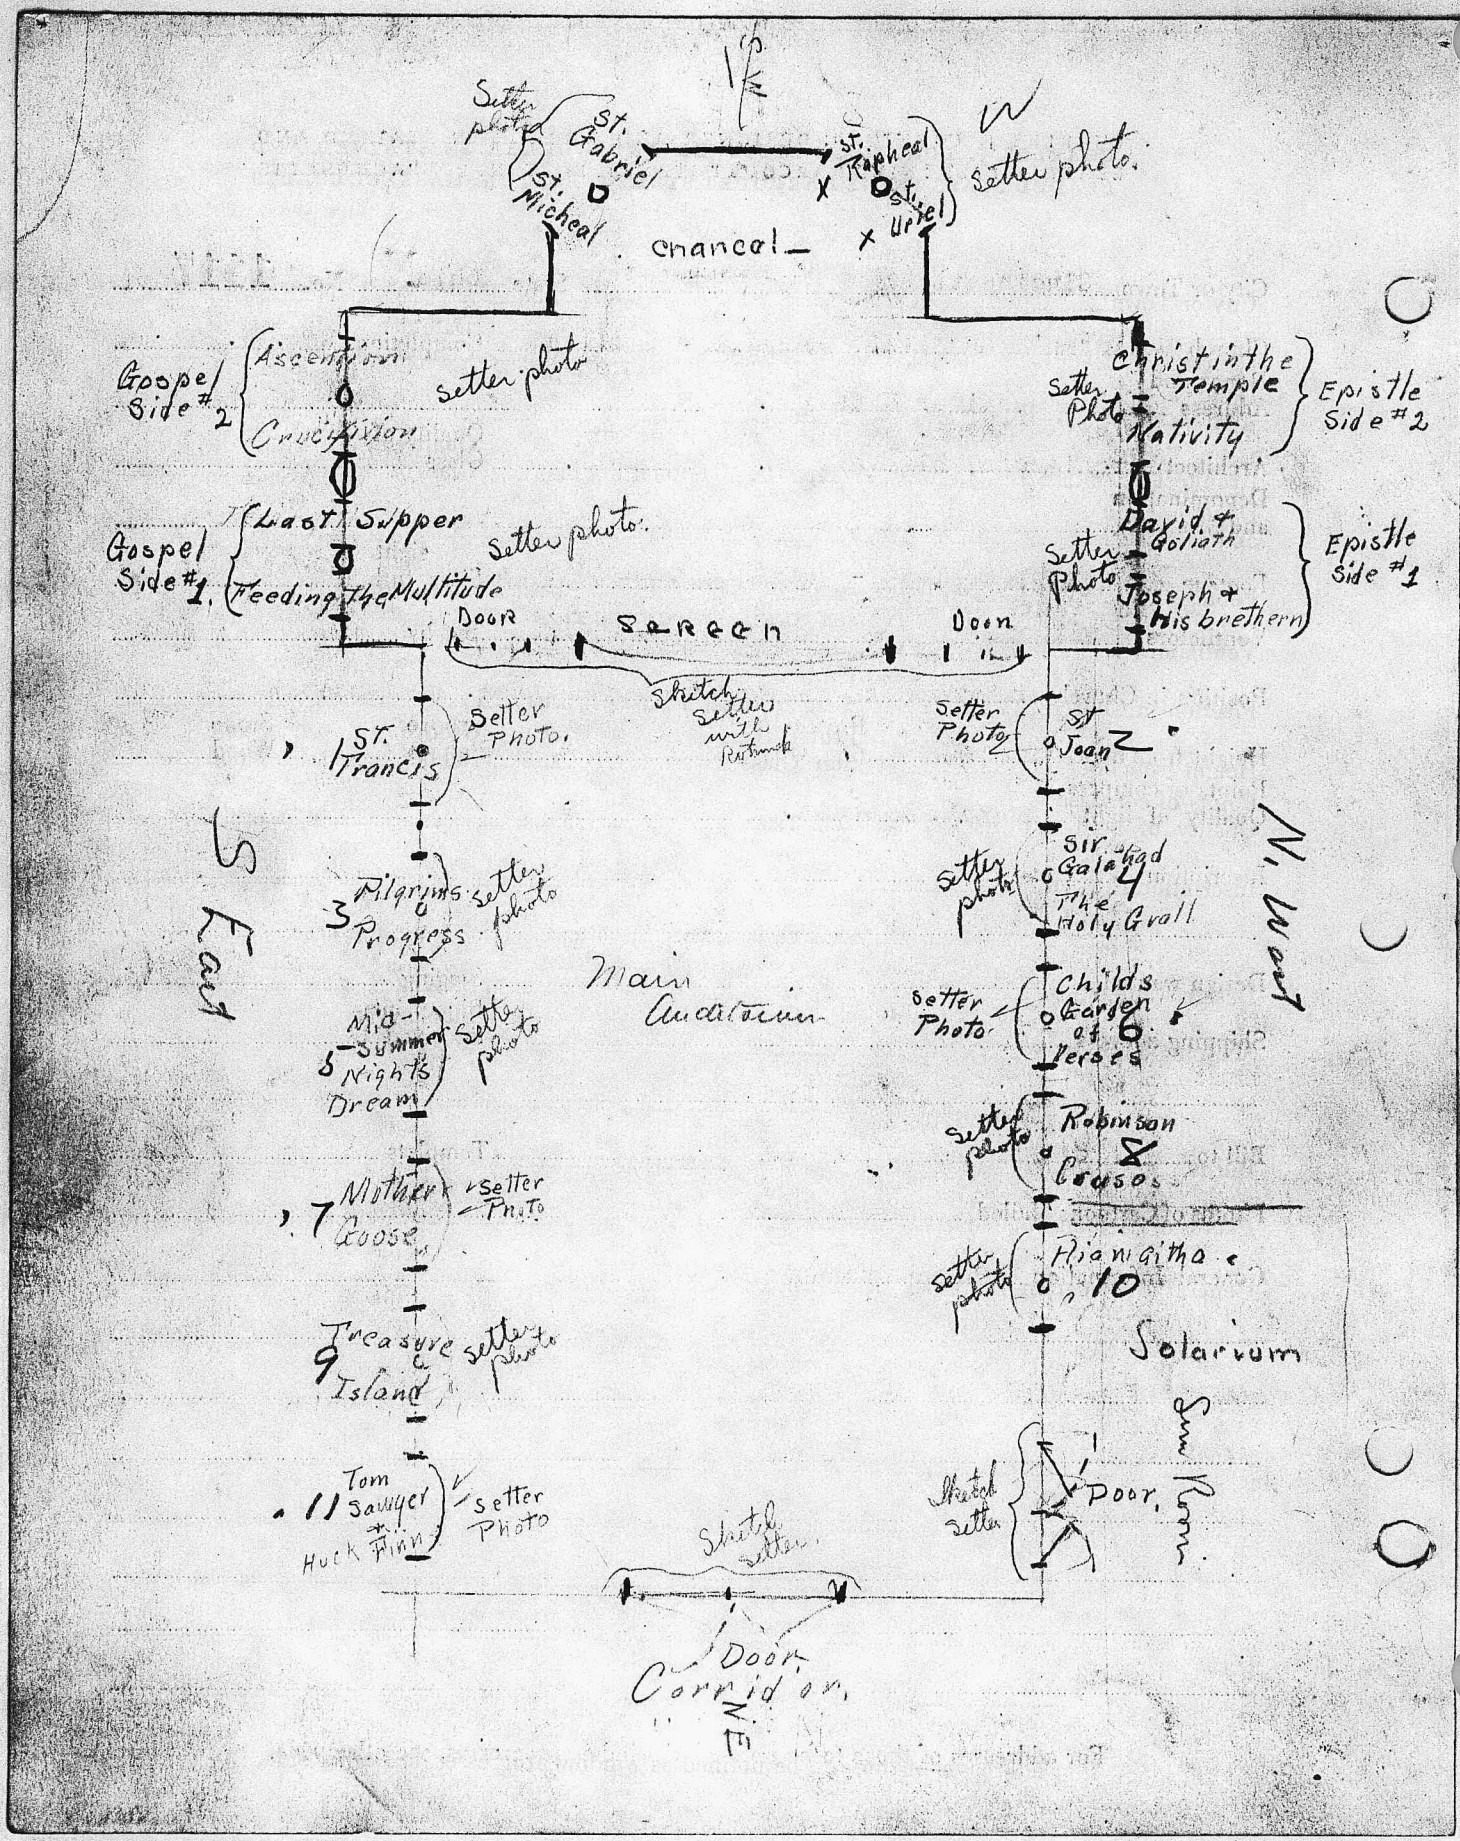 SW
W
Setter
photo
St.
Gabriel
St.
Micheal
St.
Rapheal
X
St.
Uriel
X
Setter photo.
Chancel
Gospel
Side #2
Ascention
Crucifixion
Setter photo
Christ in the
Temple
Nativity
Setter
Photo
Epistle
Side #2
Gospel
Side #1.
Last Supper
Feeding The Multitude
Setter photo.
David &
Goliath
Joseph &
His brethern
Setter
Photo
Epistle
Side #1
Door
Screen
Door
Sketch
Setter
with
1 St.
Francis
Setter
Photo.
Setter
Photo
St
Joan 2
S East
N. West
3 Pilgrims
Progress
Setter
photo
Setter
photo
Sir
Galahad
4
The
Holy Grall
Main
Auditorium
5 Mid-
Summer
Nights
Dream
Setter
photo
Setter
Photo
Childs
Garden
of 6
Verses
Setter
photo
Robinson
8
Cruso
7 Mother
Goose
Setter
Photo
Setter
photo
10
Solarium
Treasure
9
Island
Setter
photo
Sun Room
11 Tom
Sawyer
+
Huck Finn
Setter
Photo
Sketch
Setter
Door.
Sketch
Setter.
Door
Corridor.
N.E